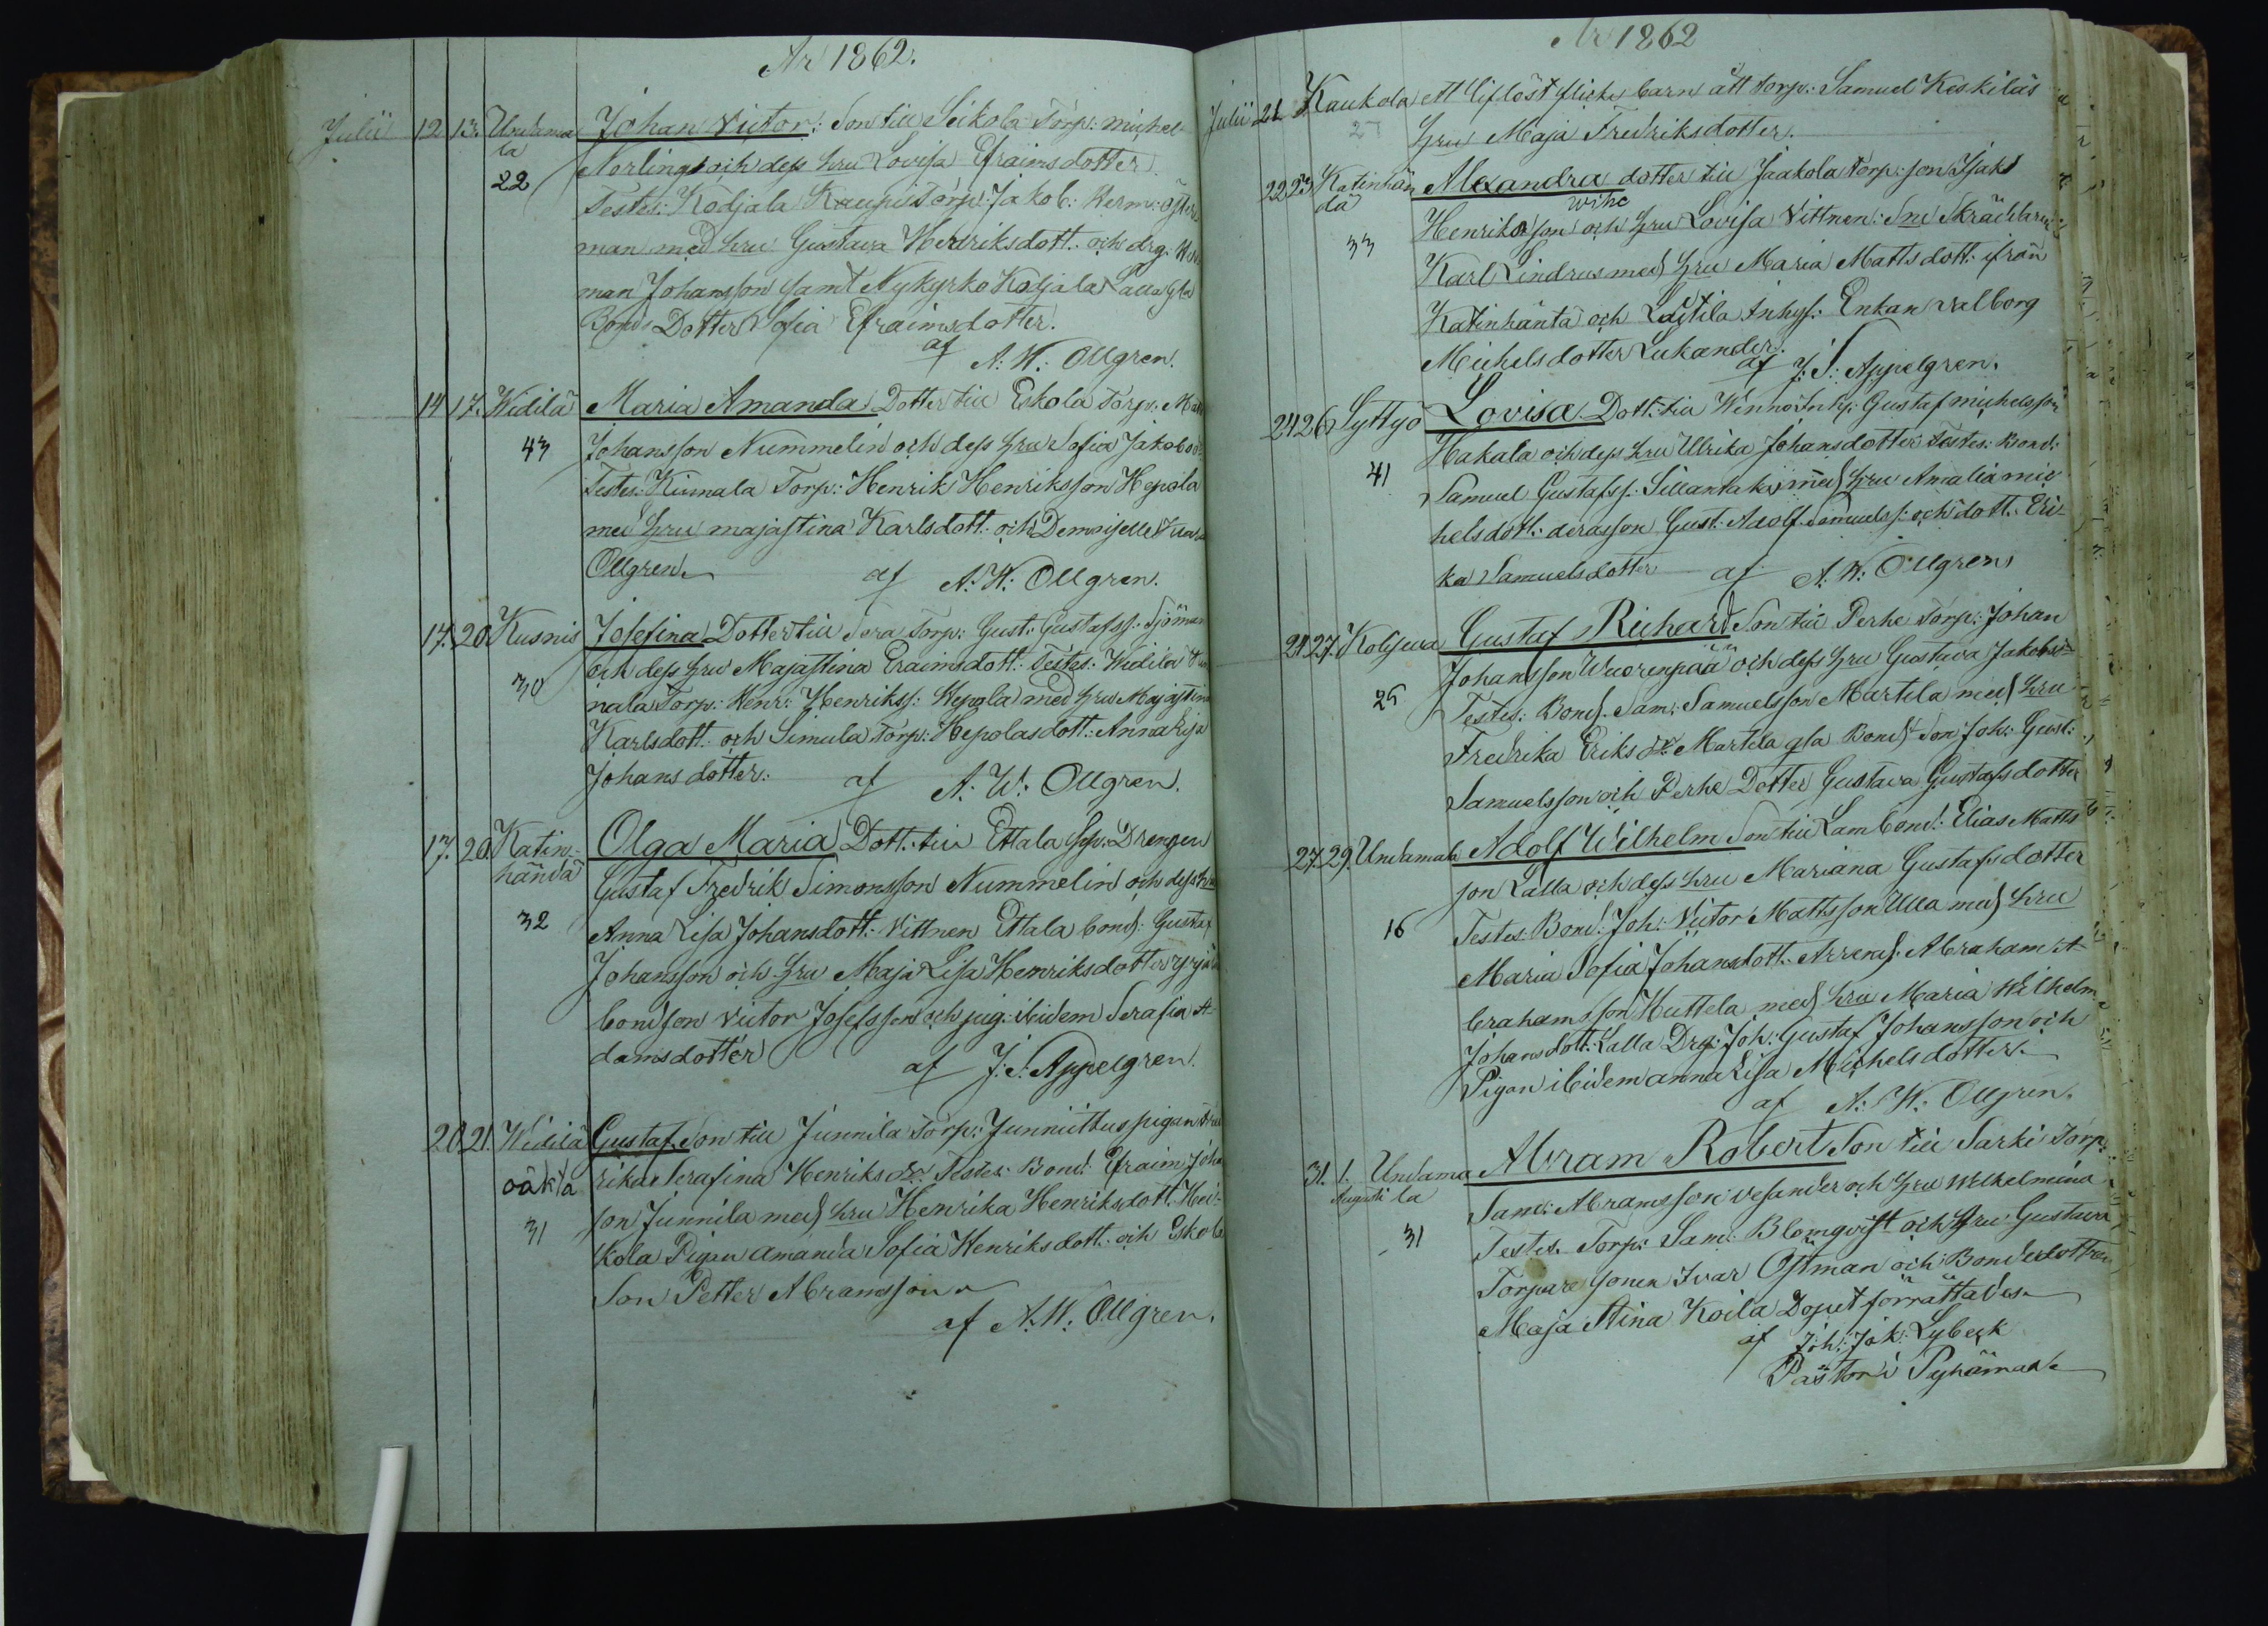 År 1862.
Julii 12 13. Undama Johan Victor: Son till Seikola Torp: Michel
la Norling och dess hru Lovisa Efraimsdotter.
22 Testes: Kodjala Kaupis Torp: Jakob: Herm: Öster
man med hru Gustava Henriksdott. och drg.
man Johansson samt Nykyrko Kodjala Lalla gla
Bonds Dotter Sofia Efraimsdotter.
af A. W. Ollgren.
14 17. Widilä Maria Amanda Dotter till Eskola Torp: Matts
43 Johansson Nummelin och dess hru Sofia Jakobsd:
Testes: Kinnala Torp: Henrik Henriksson Hepola
med hru Majastina Karlsdott. och Demoiselle
Ollgren. af A. W. Ollgren.
17. 20. Kusnis Josefina Dotter till Sora Torp: Gust: Gustafss: Sjöman
30 och dess hru Majastina Eraimsdott. Testes: Widilä Kin
nala Torp: Henr: Henrikss: Hepola med hru Majastina
Karlsdott. och Simula Torp: Hepolas dott: Anna Lisa
Johansdotter. af A. W. Ollgren.
17. 20. Katin- Olga Maria Dott. till Ettala Drengen
händä Gustaf Fredrik Simonsson Nummelin och dess hru
32 Anna Lisa Johansdott. Vittnen Ettala bond: Gustaf
Johansson och hru Maja Lisa Henriksdotter Yrjälä
bondson Victor Josefsson och jug: ibidem Serafia A-
damsdotter af J. S. Appelgren.
20. 21. Widilä Gustaf. Son till Junnila Torp: Junnittus pigan Fred
oäkta rika Serafina Henriksdr. Testes: Bond: Efraim Johs
31 son Junnila med hru Henrika Henriksdott. Hei-
kola Pigan Amanda Sofia Henriksdott. och Eskola
Son Petter Abramsson
af A. W. Ollgren.
År 1862
Julii 21 Kaukola ett liflöst flicke barn ått torp: Samuel Keskiläs
27 hru Maja Fredriksdotter.
22 23 Katinhän Alexandra dotter till Jaakola torp: son Isjaks
dä wihe
33 Henriksson och hru Lovisa Vittnen: Skräddaren
Karl Lindrus med hru Maria Mattsdott. ifrån
Katinhäntä och Laitila Inhys: Enkan Valborg
Michelsdotter Lukander.
af J. S. Appelgren.
24 26 Syttyö Lovisa Dott. till Wänno Inhy: Gustaf Michelsson
41 Hakala och dess hru Ulrika Johansdotter Testes: Bond:
Samuel Gustafss: Sillantaka med hru Amalia Mic
helsdott. deras son Gust. Adolf Samuelss: och dott. Eri-
ka Samuelsdotter af A. W. Ollgren
24 27. Koljeva Gustaf Richard Son till Perhe Torp: Johan
25 Johansson Wuorenpää och dess hru Gustava Jakobsd
Testes: Bond. Sam: Samuelsson Martila med hru
Fredrika Eriksdr. Martila gla Bond: Son Joh: Gust:
Samuelsson och Perhe Dotter Gustava Gustafsdotter
27. 29. Undamala Adolf Wilhelm Son till Lambond: Elias Matts
son Lalla och dess hru Mariana Gustafsdotter
16 Testes: Bond. Joh: Victor Mattsson Ulla med hru
Maria Sofia Johansdott. Arrend: Abraham A-
brahamsson Huttela med hru Maria Wilhelm
Johansdott. Lalla Drg: Joh: Gustaf Johansson och
Pigan ibidem Anna Lisa Michelsdotter.
af A. W. Ollgren.
31. 1. Undama Abram Robert Son till Sarki Torp:
Augusti la Sam: Abramsson Vesander och hru Wilhelmina
31 Testes. Torp: Sam: Blomqvist och hru Gustava
Torpare Sonen Ivar Östman och Bondedottren
Maja Stina Koila Dopet förrättades
af Joh: Jak: Lybeck
Pastor i Pyhämaa.